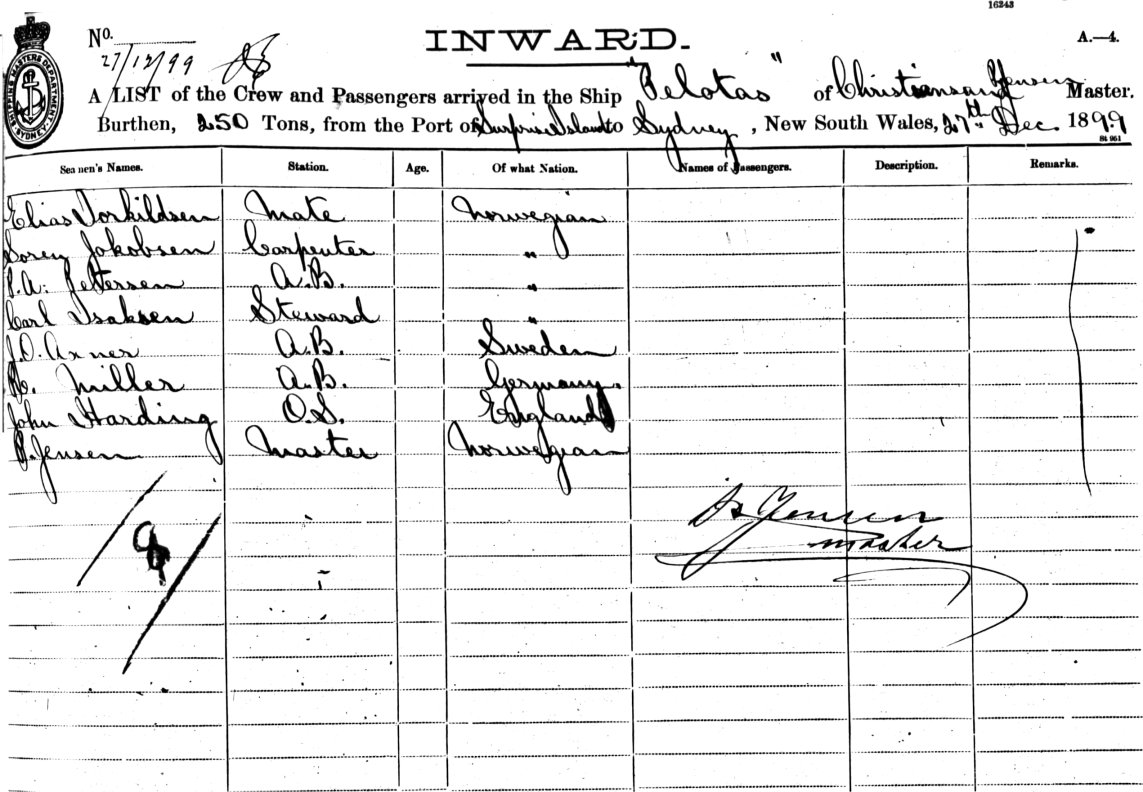 16243
No. 27/12/99
INWARD.
A.—4.
A LIST of the Crew and Passengers arrived in the Ship "Pelotas" of Christiansand Jensen Master.
Burthen, 250 Tons, from the Port of Surprise Island to Sydney, New South Wales, 27th Dec 1899
SHIPPING MASTERS DEPARTMENT SYDNEY
Seamen's Names. Station. Age. Of what Nation. Names of Passengers. Description. Remarks.
Elias Torkildsen Mate Norwegian
Soren Jakobsen Carpenter "
P.A. Pettersen A.B. "
Carl Isaksen Steward "
J.O. Axner A.B. Sweden
Miller A.B. Germany.
John Harding O.S. England
P. Jensen Master Norwegian
Jensen
master